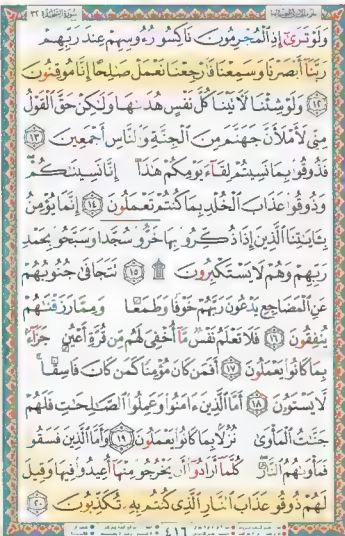 سُورَةُ السَّجْدَةِ ٣٢
وَلَوْ تَرَىٰٓ إِذِ ٱلْمُجْرِمُونَ نَاكِسُوا۟ رُءُوسِهِمْ عِندَ رَبِّهِمْ
رَبَّنَآ أَبْصَرْنَا وَسَمِعْنَا فَٱرْجِعْنَا نَعْمَلْ صَٰلِحًا إِنَّا مُوقِنُونَ
١٢ وَلَوْ شِئْنَا لَـَٔاتَيْنَا كُلَّ نَفْسٍ هُدَىٰهَا وَلَٰكِنْ حَقَّ ٱلْقَوْلُ
مِنِّى لَأَمْلَأَنَّ جَهَنَّمَ مِنَ ٱلْجِنَّةِ وَٱلنَّاسِ أَجْمَعِينَ ١٣
فَذُوقُوا۟ بِمَا نَسِيتُمْ لِقَآءَ يَوْمِكُمْ هَٰذَآ إِنَّا نَسِينَٰكُمْ
وَذُوقُوا۟ عَذَابَ ٱلْخُلْدِ بِمَا كُنتُمْ تَعْمَلُونَ ١٤ إِنَّمَا يُؤْمِنُ
بِـَٔايَٰتِنَا ٱلَّذِينَ إِذَا ذُكِّرُوا۟ بِهَا خَرُّوا۟ سُجَّدًا وَسَبَّحُوا۟ بِحَمْدِ
رَبِّهِمْ وَهُمْ لَا يَسْتَكْبِرُونَ ۩ ١٥ تَتَجَافَىٰ جُنُوبُهُمْ
عَنِ ٱلْمَضَاجِعِ يَدْعُونَ رَبَّهُمْ خَوْفًا وَطَمَعًا وَمِمَّا رَزَقْنَٰهُمْ
يُنفِقُونَ ١٦ فَلَا تَعْلَمُ نَفْسٌ مَّآ أُخْفِىَ لَهُم مِّن قُرَّةِ أَعْيُنٍ جَزَآءًۢ
بِمَا كَانُوا۟ يَعْمَلُونَ ١٧ أَفَمَن كَانَ مُؤْمِنًا كَمَن كَانَ فَاسِقًا ۚ
لَّا يَسْتَوُۥنَ ١٨ أَمَّا ٱلَّذِينَ ءَامَنُوا۟ وَعَمِلُوا۟ ٱلصَّٰلِحَٰتِ فَلَهُمْ
جَنَّٰتُ ٱلْمَأْوَىٰ نُزُلًۢا بِمَا كَانُوا۟ يَعْمَلُونَ ١٩ وَأَمَّا ٱلَّذِينَ فَسَقُوا۟
فَمَأْوَىٰهُمُ ٱلنَّارُ ۖ كُلَّمَآ أَرَادُوٓا۟ أَن يَخْرُجُوا۟ مِنْهَآ أُعِيدُوا۟ فِيهَا وَقِيلَ
لَهُمْ ذُوقُوا۟ عَذَابَ ٱلنَّارِ ٱلَّذِى كُنتُم بِهِۦ تُكَذِّبُونَ ٢٠
٤١٦